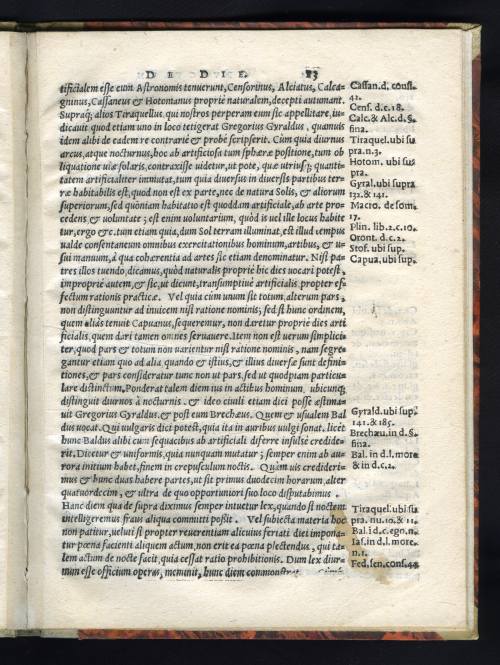 DE DIE. 83
tificialem esse cum Astronomis tenuerunt, Censorinus, Alciatus, Calca-
gninus, Cassaneus & Hotomanus proprie naturalem, decepti autumant.
Supraq; alios Tiraquellus, qui nostros perperam eum sic appellitare, iu-
dicauit quod etiam uno in loco tetigerat Gregorius Gyraldus, quamuis
idem alibi de eadem re contrariè & probè scripserit. Cùm quia diurnus
arcus, atque nocturnus, hoc ab artificiosa tum sphæræ positione, tum ob
liquatione uiæ solaris, contraxisse uidetur, ut pote, quæ utriusq; quanti-
tatem artificialiter immutat, tum quia diuersus in diuersis partibus ter-
ræ habitabilis est, quod non est ex parte, nec de natura Solis, & aliorum
superiorum, sed quòniam habitatio est quoddam artificiale, ab arte pro-
cedens & uoluntate; est enim uoluntarium, quòd is uel ille locus habite
tur, ergo &c. tum etiam quia, dum Sol terram illuminat, est illud tempus
ualde consentaneum omnibus exercitationibus hominum, artibus, & u-
sui manuum, à qua cohærentia ad artes sic etiam denominatur. Nisi pa-
tres illos tuendo, dicamus, quòd naturalis proprie hic dies uocari potest,
improprie autem, & sic, ut dicunt, transumptiuè artificialis propter ef-
fectum rationis practicæ. Vel quia cùm unum sit totum, alterum pars,
non distinguuntur ad inuicem nisi ratione nominis; sed si hunc ordinem,
quem aliàs tenuit Capuanus, sequeremur, non daretur proprie dies arti
ficialis, quem dari tamen omnes seruauere. Item non est uerum simplici-
ter, quod pars & totum non uarientur nisi ratione nominis, nam segre-
gantur etiam quo ad alia, quando & istius, & illius diuersæ sunt defini-
tiones, & pars consideratur tunc non ut pars, sed ut quodpiam particu-
lare distinctum. Ponderat talem diem ius in actibus hominum, ubicunq;
distinguit diurnos à nocturnis. & ideo ciuili etiam dici posse æstima-
uit Gregorius Gyraldus, & post eum Brechæus. Quem & usualem Bal
dus uocat. Qui uulgaris dici potest, quia ita in auribus uulgi sonat, licèt
hunc Baldus alibi cum sequacibus ab artificiali differre insulsè credide-
rit. Dicetur & uniformis, quia nunquam mutatur; semper enim ab au-
rora initium habet, finem in crepusculum noctis. Quàm uis credideri-
mus & hunc duas habere partes, ut sit primus duodecim horarum, alter
quatuordecim, & ultra de quo opportuniori suo loco disputabimus.
Hanc diem qua de supra diximus semper intuetur lex, quando si noctem
intelligeremus fraus aliqua committi possit. Vel subiecta materia hoc
non patitur, ueluti si propter reuerentiam alicuius feriati diei impona-
tur pœna facienti aliquem actum, non erit ea pœna plectendus, qui ta-
lem actum de nocte facit, quia cessat ratio prohibitionis. Dum lex diur-
num esse officium operæ, meminit, hunc diem commonstrat.
Cassan. d. consi.
42.
Cens. d. c. 18.
Calc. & Alc. d. §.
fina.
Tiraquel. ubi su
pra. n. 3.
Hotom. ubi su
pra.
Gyral. ubi supra
132. & 141.
Macro. de som.
17.
Plin. lib. 2. c. 10.
Oront. d. c. 2.
Stof. ubi sup.
Capua. ubi sup.
Gyrald. ubi sup.
141. & 185.
Brechæu. in d. §.
fina.
Bal. in d. l. more
& in d. c. 2.
Tiraquel. ubi su
pra. nu. 10. & 11.
Bal. i d. c. ego. n.
Ias. in d. l. more.
n. 1.
Fed. sen. cons. 44